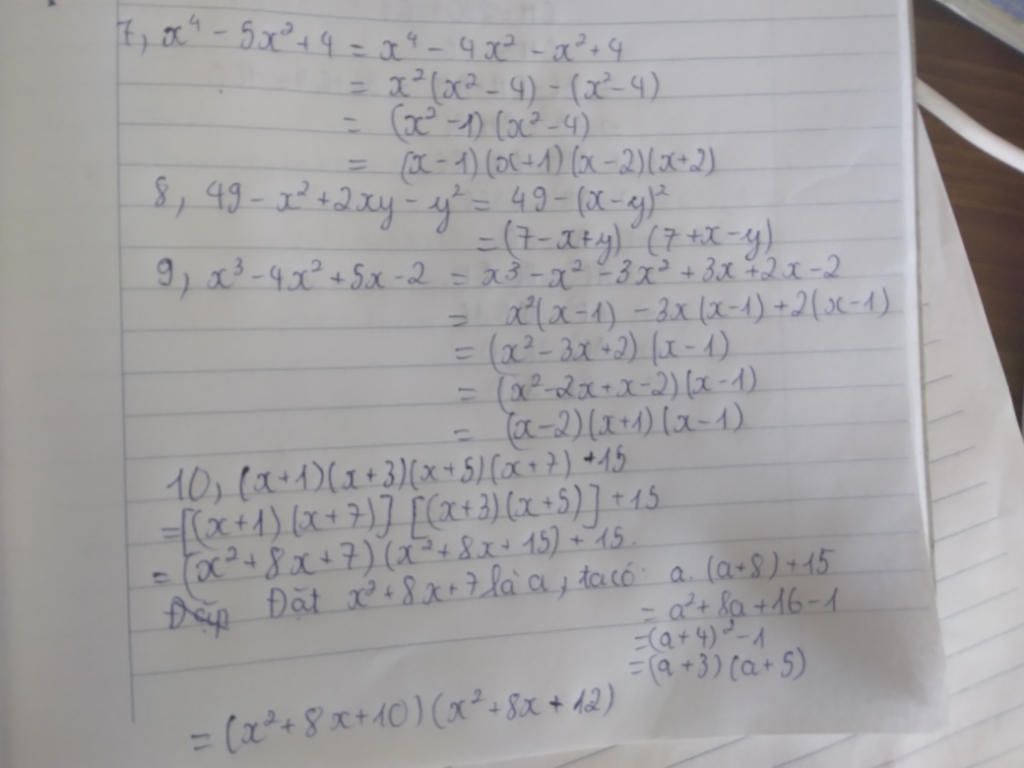 7, x⁴ - 5x² + 4 = x⁴ - 4x² - x² + 4
= x²(x² - 4) - (x² - 4)
= (x² - 1)(x² - 4)
= (x - 1)(x + 1)(x - 2)(x + 2)
8, 49 - x² + 2xy - y² = 49 - (x - y)²
= (7 - x + y) (7 + x - y)
9, x³ - 4x² + 5x - 2 = x³ - x² - 3x² + 3x + 2x - 2
= x²(x - 1) - 3x(x - 1) + 2(x - 1)
= (x² - 3x + 2)(x - 1)
= (x² - 2x + x - 2)(x - 1)
= (x - 2)(x + 1)(x - 1)
10, (x + 1)(x + 3)(x + 5)(x + 7) + 15
= [(x + 1)(x + 7)] [(x + 3)(x + 5)] + 15
= (x² + 8x + 7)(x² + 8x + 15) + 15.
Đặt x² + 8x + 7 là a, ta có: a.(a + 8) + 15
= a² + 8a + 16 - 1
= (a + 4)² - 1
= (a + 3)(a + 5)
= (x² + 8x + 10)(x² + 8x + 12)